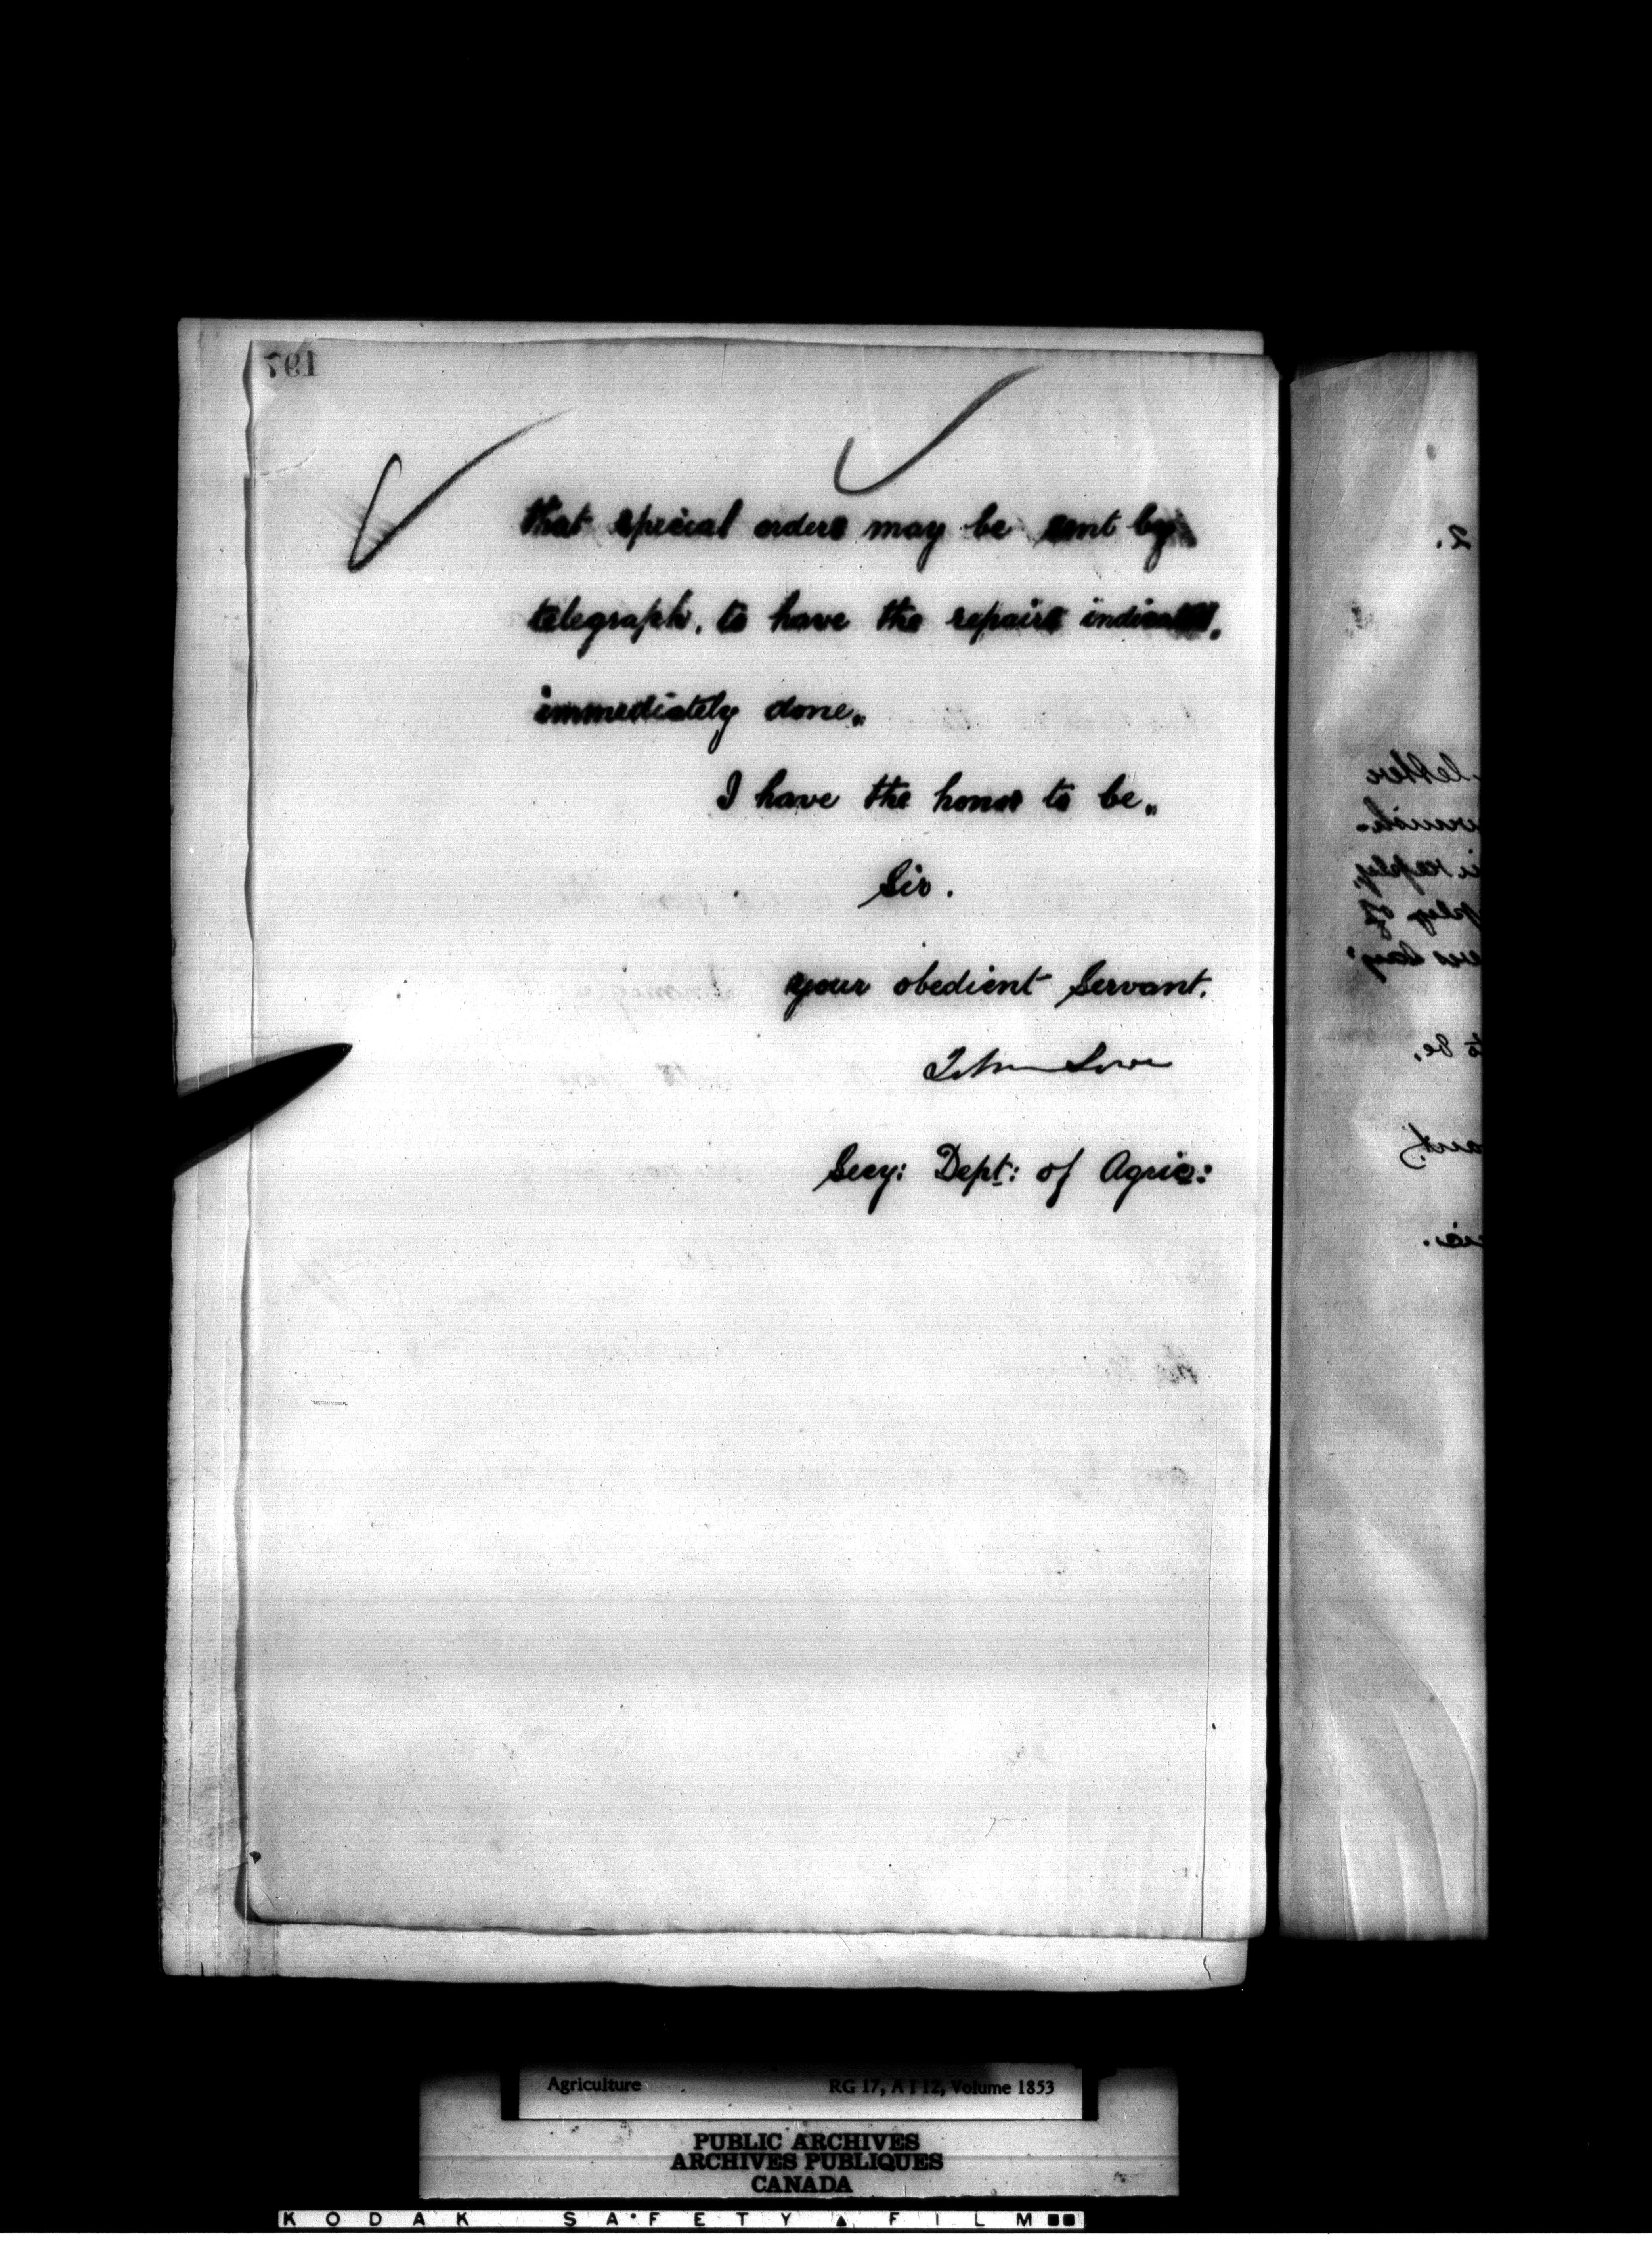 197
that special orders may be sent by
telegraph, to have the repairs indicated,
immediately done„
I have the honor to be„
Sir.
your obedient Servant.
John Lowe
Secy: Dept: of Agric:
2.
letter
reply,
of
to be,
Agriculture RG 17, A I 12, Volume 1853
PUBLIC ARCHIVES
ARCHIVES PUBLIQUES
CANADA
KODAK SA•FETY ▲ FILM ■■